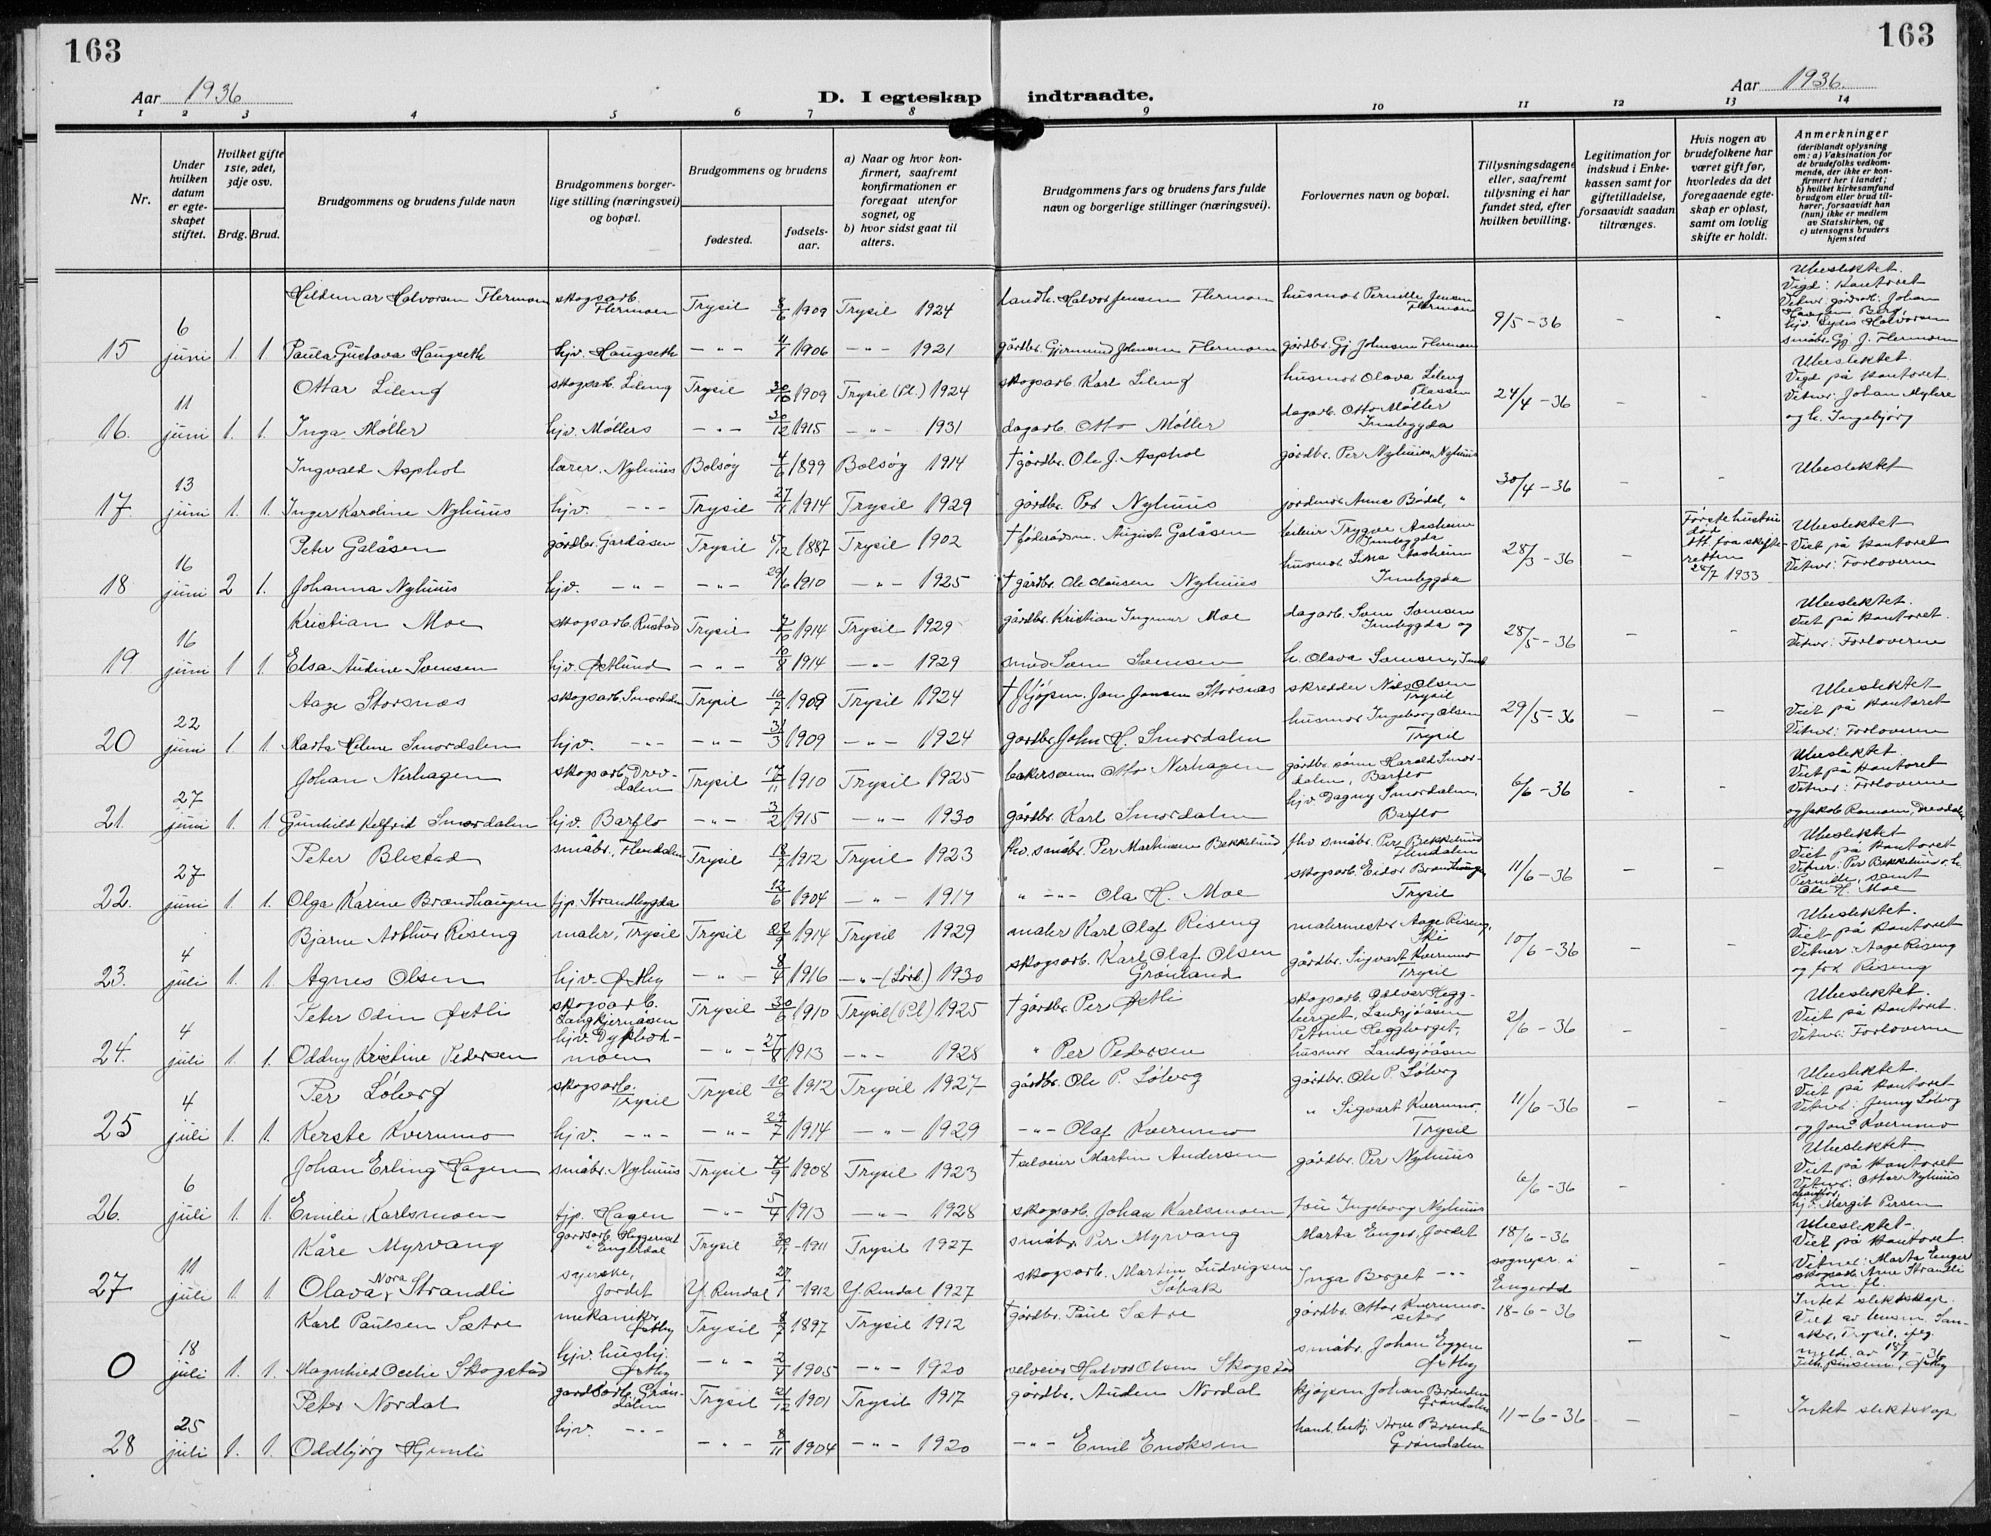 163
163
Aar 1936
D. I egteskap indtraadte.
Aar 1936.
1 2 3 4 5 6 7 8 9 10 11 12 13 14
Nr.
Under hvilken datum er egteskapet stiftet.
Hvilket gifte 1ste, 2det, 3dje osv.
Brdg. Brud.
Brudgommens og brudens fulde navn
Brudgommens borgerlige stilling (næringsvei) og bopæl.
Brudgommens og brudens
fødested.
fødselsaar.
a) Naar og hvor konfirmert, saafremt konfirmationen er foregaat utenfor sognet, og
b) hvor sidst gaat til alters.
Brudgommens fars og brudens fars fulde navn og borgerlige stillinger (næringsvei).
Forlovernes navn og bopæl.
Tillysningsdagene eller, saafremt tillysning ei har fundet sted, efter hvilken bevilling.
Legitimation for indskud i Enkekassen samt for giftetilladelse, forsaavidt saadan tiltrænges.
Hvis nogen av brudefolkene har været gift før, hvorledes da det foregaaende egteskap er opløst, samt om lovlig skifte er holdt.
Anmerkninger
(deriblandt oplysning om: a) Vaksination for de brudefolks vedkommende, der ikke er konfirmert her i landet; b) hvilket kirkesamfund brudgom eller brud tilhører, forsaavidt han (hun) ikke er medlem av Statskirken, og c) utensogns bruders hjemsted
Hildemar Halvorsen Flermoen skogsarb. Flermoen Trysil 8/6 1909 Trysil 1924 landh. Halvor Jensen Flermoen husmor Pernille Jensen Flermoen 9/5-36 - - Ubeslektet. Vigd: Kontoret
15 6 juni 1. 1. Paula Gustava Haugseth hjv. Haugseth -"- 4/7 1906 -"- 1921 gårdbr. Gjermund Johnsen Flermoen gårdbr. Gj. Johnsen Flermoen
Ottar Lileng skogsarb. Lileng Trysil 30/6 1909 Trysil (Pl.) 1924 skogsarb. Karl Lileng husmor Olava Lileng Plassen 24/4-36 - - Ubeslektet. Vigd på Kontoret. Vitner: Johan Myhre og h. Ingebjørg
16. 11 juni 1. 1. Inga Møller hjv. Møllers -"- 30/12 1915 -"- 1931 dagarb. Otto Møller dagarb. Otto Møller Innbygda
Ingvald Asphol lærer. Nyhuus Bolsøy 4/6 1899 Bolsøy 1914 † gårdbr. Ole J. Asphol gårdbr. Per Nyhuus, Nyhuus 30/4-36 - - Ubeslektet
17. 13 juni 1. 1. Inger Karoline Nyhuus hjv. -"- Trysil 27/11 1914 Trysil 1929 gårdbr. Per Nyhuus jordmor Anna Bødal, "
Peter Galåsen gårdbr. Gardåsen Trysil 5/12 1887 Trysil 1902 † føderådsm. August Galåsen Trygve Aasheim Innbygda 28/3-36 - Første hustru død. Att. fra skifteretten 28/7 1933 Ubeslektet Viet på Kontoret Vitner: Forloverne
18 16 juni 2 1. Johanna Nyhuus hjv. -"- -"- 29/6 1910 -"- 1925 † gårdbr. Ole Olausen Nyhuus husmor Lina Aasheim Innbygda
Kristian Moe skogsarb. Rustad Trysil 7/10 1914 Trysil 1929 gårdbr. Kristian Ingemar Moe dagarb. Sven Svensen Innbygda og 28/5-36 - - Ubeslektet. Viet på Kontoret. Vitner: Forloverne
19 16 juni 1 1. Elsa Andine Svensen hjv. Østlund -"- 10/8 1914 -"- 1929 smed Sven Svensen h. Olava Svensen, Innb.
Aage Storsnæs skogsarb. Smordalen Trysil 10/7 1909 Trysil 1924 † kjøpm. Jon Jonsen Storsnæs skredder Nils Olsen Trysil 29/5-36 - - Ubeslektet Viet på Kontoret Vitner: Forloverne
20 22 juni 1 1. Marta Helene Smordalen hjv. -"- -"- 31/3 1909 -"- 1924 gardbr. John H. Smordalen husmor Ingeborg Olsen Trysil
Johan Nerhagen skogsarb. Drevdalen Trysil 17/11 1910 Trysil 1925 bakersvenn Otto Nerhagen gårdbr. sønn Harald Smordalen, Barflo 6/6-36 - - Ubeslektet. Viet på Kontoret Vitner: Forloverne
21. 27 juni 1. 1. Gunhild Kelfrid Smordalen hjv. Barflo -"- 3/2 1915 -"- 1930 gårdbr. Karl Smordalen hjv. Dagny Smordalen, Barflo og Jakob Romoen, Drevdalen
Peter Blestad småbr. Flendalen Trysil 18/7 1912 Trysil 1923 fhv. småbr. Per Martinsen Bekkelund fhv småbr. Per Bekkelund Flendalen 11/6-36 - - Ubeslektet Viet på Kontoret Vitner: Per Bekkelund o. h. Pernille, samt Ola H. Moe
22. 27 juni 1. 1. Olga Karine Brændhaugen hjp. Strandbygda 12/6 1904 -"- 1917 " -"- Ola H. Moe skogsarb. Eidor Brændhaugen Trysil
Bjarne Arthur Riseng maler, Trysil Trysil 22/9 1914 Trysil 1929 maler Karl Olaf Riseng malermester Aage Riseng, Ski 10/6-36 - - Ubeslektet. Viet på Kontoret Vitner: Aage Riseng
23. 4 juli 1. 1. Agnes Olsen hjv. Østby -"- 8/4 1916 -"- 1930 skogsarb. Karl Olaf Olsen Grønland gårdbr. Sigvart Kvermo Trysil
Peter Odin Østli skogsarb. Trysil 30/6 1910 Trysil (Pl) 1925 † gårdbr. Per Østli skogsarb. Oddvar Heggberget, Landsjøåsen 2/6-36 - - Ubeslektet. Viet på Kontoret. Vitner: Forloverne
24. 4 juli 1. 1. Oddny Kristine Pedersen hjv. -"- 27/8 1913 -"- 1928 " Per Pedersen Petrine Heggberget, husmor Landsjøåsen
Per Løberg skogsarb. Trysil Trysil 10/6 1912 Trysil 1927 gårdbr. Ole P. Løberg gårdbr. Ole P. Løberg 11/6-36 - - Ubeslektet. Viet på Kontoret Vitner: Jenny Løberg
25 4 juli 1. 1. Kerste Kvermo hjv. -"- -"- 29/7 1914 -"- 1929 -"- Olaf Kvermo " Sigvart Kvermo. Trysil
Johan Erling Hagen småbr. Nyhuus Trysil 7/9 1908 Trysil 1923 † selveier Martin Andersen gårdbr. Per Nyhuus 6/6-36 - Ubeslektet. Viet på Kontoret Vitner: Ottar Nyhuus hjv. Margit Persen
26. 6 juli 1. 1. Emilie Karlsmoen tjp. Hagen -"- 5/4 1913 -"- 1928 skogsarb. Johan Karlsmoen Fru Ingeborg Nyhuus
Kåre Myrvang gardsarb. i Engerdal Trysil 30/7 1911 Trysil 1927 småbr. Per Myrvang Marta Enger, Jordet 18/6-36 sognepr. i Engerdal - - Ubeslektet. Viet på Kontoret. Vitner: Marta Enger
27 11 juli 1. 1. Olava Nora Strandli syerske, Jordet Y. Rendal 27/1 1912 Y. Rendal 1927 skogsarb. Martin Ludvigsen Inga Berget -"-
Karl Paulsen Sætre mekaniker Østby Trysil 8/7 1897 Trysil 1912 † gårdbr. Paul Sætre gårdbr. Ottar Kvermoseter 18-6-36 - - Intet slektskap.
0 18 juli 1. 1. Magnhild Ocelie Skogstad hjv. hush. Østby -"- 2/4 1905 -"- 1920 selveier Halvor Olsen Skogstad småbr. Johan Eggen Østby
Peter Nordal gardsarb. Grøndalen Trysil 21/12 1901 Trysil 1917 gårdbr. Auden Nordal kjøpm Johan Brænden Grøndalen 11-6-36 - - Intet slektskap
28 25 juli 1. 1. Oddbjørg Hjemli hjv. -"- -"- 8/11 1904 -"- 1920 -"- Emil Enoksen Arve Brænden Grøndalen